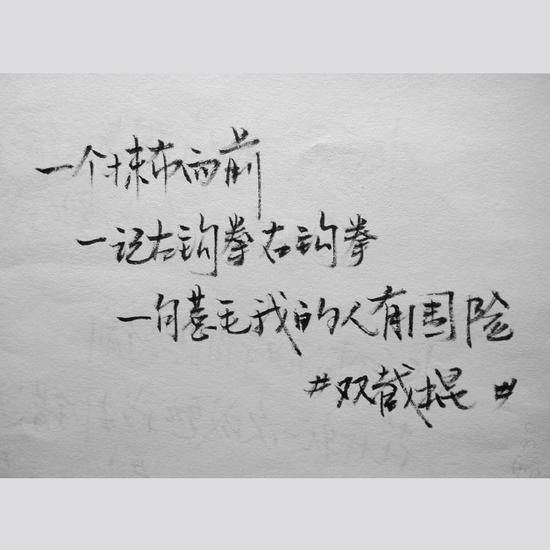 一个抹布向前
一记左钩拳右钩拳
一句惹毛我的人有围险
#双截棍#